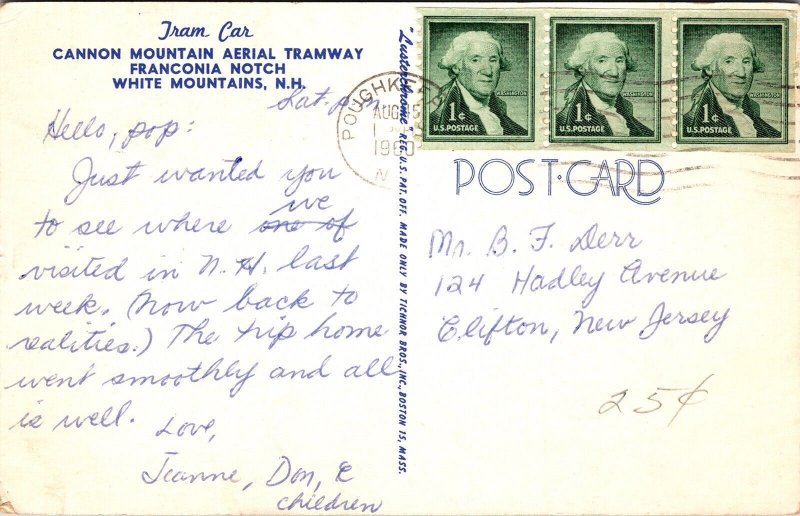 Tram Car
CANNON MOUNTAIN AERIAL TRAMWAY
FRANCONIA NOTCH
WHITE MOUNTAINS, N.H.
Sat. p.m.
Hello, pop:
Just wanted you
to see where we one of
visited in N.H. last
week. (Now back to
realities.) The trip home
went smoothly and all
is well.
Love,
Jeanne, Don, &
children
"Lusterchrome" REG. U.S. PAT. OFF. MADE ONLY BY TICHNOR BROS., INC., BOSTON 15, MASS.
POUGHKEEP
AUG
1960
N
1¢ WASHINGTON
U.S. POSTAGE
1¢ WASHINGTON
U.S. POSTAGE
1¢ WASHINGTON
U.S. POSTAGE
POST-CARD
Mr. B. F. Derr
124 Hadley Avenue
Clifton, New Jersey
25¢